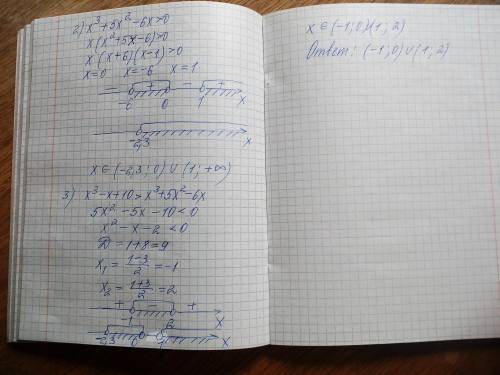 2) x³+5x²-6x>0
x(x²+5x-6)>0
x(x+6)(x-1)>0
x=0 x=-6 x=1
- + - +
-6 0 1 x
-2,3 x
x∈(-2,3;0)∪(1;+∞)
3) x³-x+10>x³+5x²-6x
5x²-5x-10<0
x²-x-2<0
D=1+8=9
x₁=(1-3)/2=-1
x₂=(1+3)/2=2
+ - +
-1 2 x
-2,3 0 1 x
x∈(-1;0)(1;2)
Ответ: (-1;0)∪(1;2)